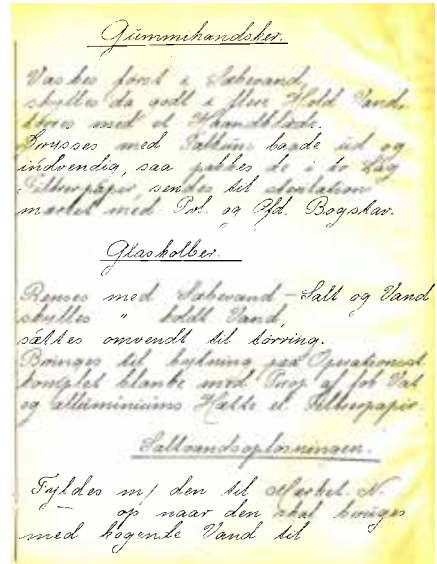 Gummihandsker.
Vaskes först i Sæbevand,
skylles da godt i flere Hold Vand,
törres med et Haandklæde.
Drysses med Talkum baade ud og
indvendig, saa pakkes de i to Lag
Filterpapir, sendes til
market med Prl. og Afd. Bogstav.
Glaskolber.
Renses med Sæbevand - Salt og Vand
skylles " koldt Vand,
sættes omvendt til törring.
Bringes til paa Operationsst.
komplet blanke med Prop af Vat
og alluminiums Hætte et Filterpapir.
Saltvandsoplösningen.
Fyldes m/ den til Mærket. N.
— op naar den skal bruges
med kogende Vand til